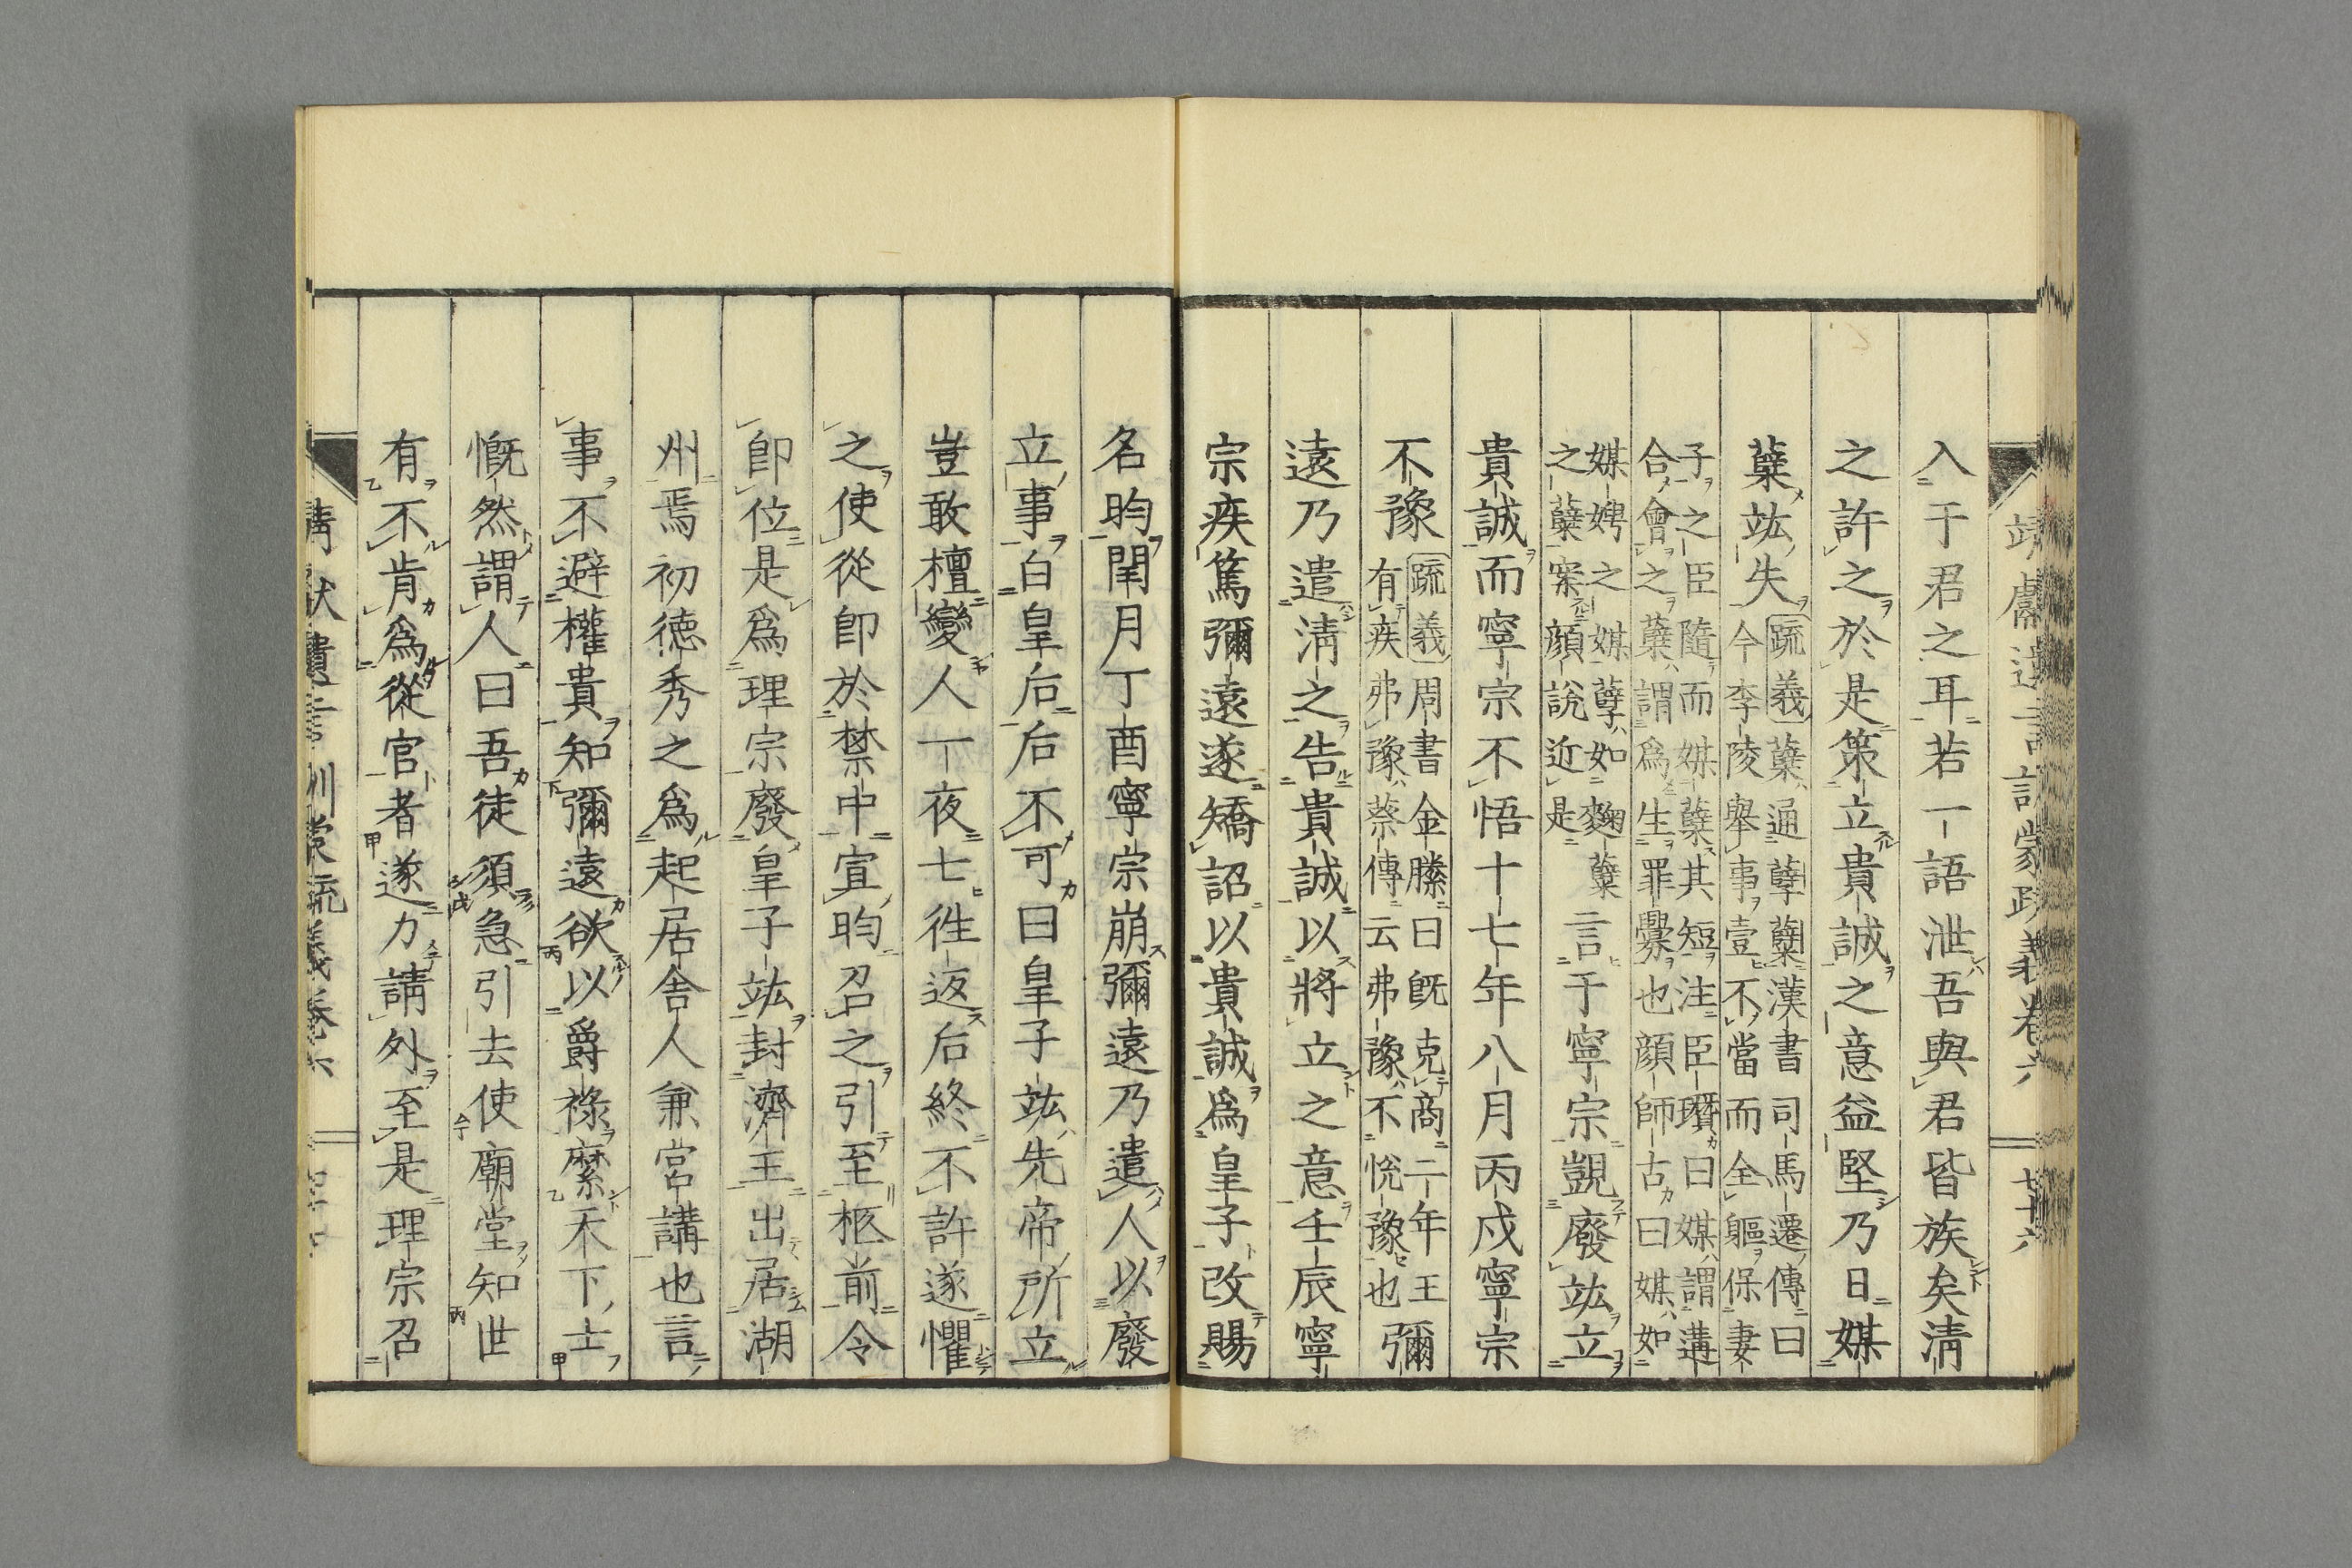 靖獻遺言訓蒙疏義卷六　七十六
入于君之耳若一語泄吾與君皆族矣清
之許之於是策立貴誠之意益堅乃日媒
蘖竑失
疏義蘖通孽糵漢書司馬遷傳曰
今李陵舉事壹不當而全軀保妻
子之臣隨而媒蘖其短注臣瓚曰媒謂遘
合會之蘖謂爲生罪釁也顔師古曰媒如
媒娉之媒孽如麴糵
之糵案顔説近是
言于寧宗覬廢竑立
貴誠而寧宗不悟十七年八月丙戍寧宗
不豫
疏義周書金縢曰既克商二年王
有疾弗豫蔡傳云弗豫不悦豫也
彌
遠乃遣清之告貴誠以將立之意壬辰寧
宗疾篤彌遠遂矯詔以貴誠爲皇子改賜
名昀閏月丁酉寧宗崩彌遠乃遣人以廢
立事白皇后后不可曰皇子竑先帝所立
豈敢檀變人一夜七徃返后終不許遂懼
之使從即於禁中宣昀召之引至柩前令
即位是爲理宗廢皇子竑封濟王出居湖
州焉初徳秀之爲起居舍人兼宮講也言
事不避權貴知彌遠欲以爵祿縻天下士
慨然謂人曰吾徒須急引去使廟堂知世
有不肯爲從官者遂力請外至是理宗召